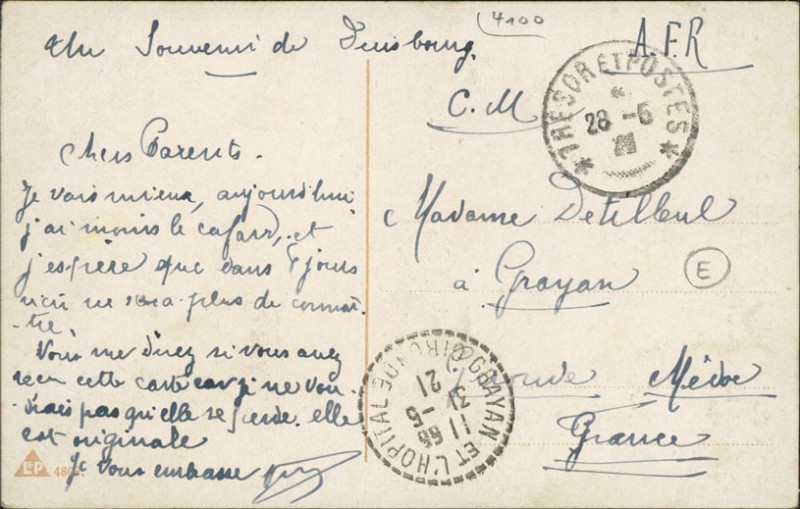 4100
Un Souvenir de Duisbourg.
A.F.R
C.M
TRESOR ET POSTES
28 -5
21
chers Parents.
Je vais mieux, aujourd'hui
j'ai moins le cafard, et
j'espère que dans 8 jours
ne sera plus de
tre.
Vous me direz si vous avez
reçu cette carte car je ne vou
drais pas qu'elle se perde. elle
est originale
Je vous embrasse
Madame Detilleul
à Grayan
E
Gironde Médoc
France
GRAYAN ET L'HOPITAL
GIRONDE
21
31 -5
11
LEP
480